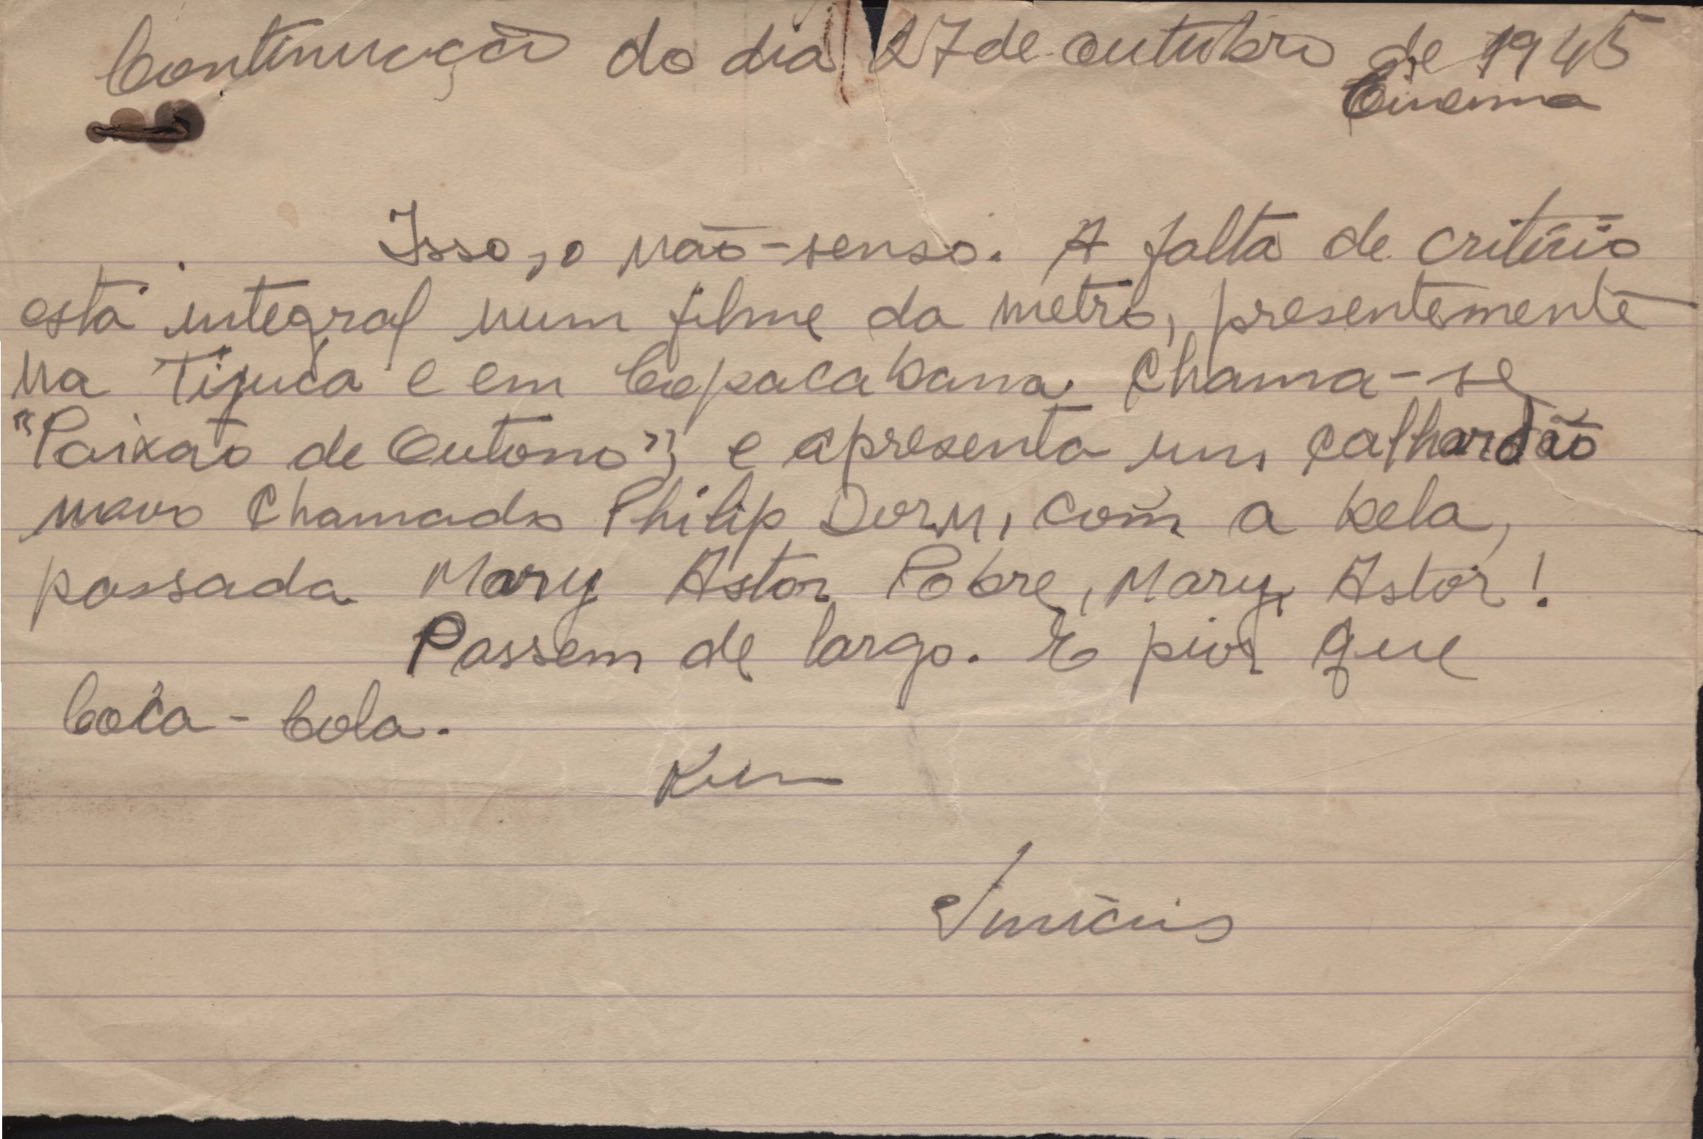 Continuação do dia 27 de outubro de 1945
Cinema
Isso, o não-senso. A falta de critério
está integral num filme da metro, presentemente
na Tijuca e em Copacabana. Chama-se
"Paixão de Outono", e apresenta um calhardão
novo chamado Philip Dorn, com a bela,
passada Mary Astor. Pobre, Mary, Astor!
Passem de largo. É pior que
Coca-Cola.
Vinicius